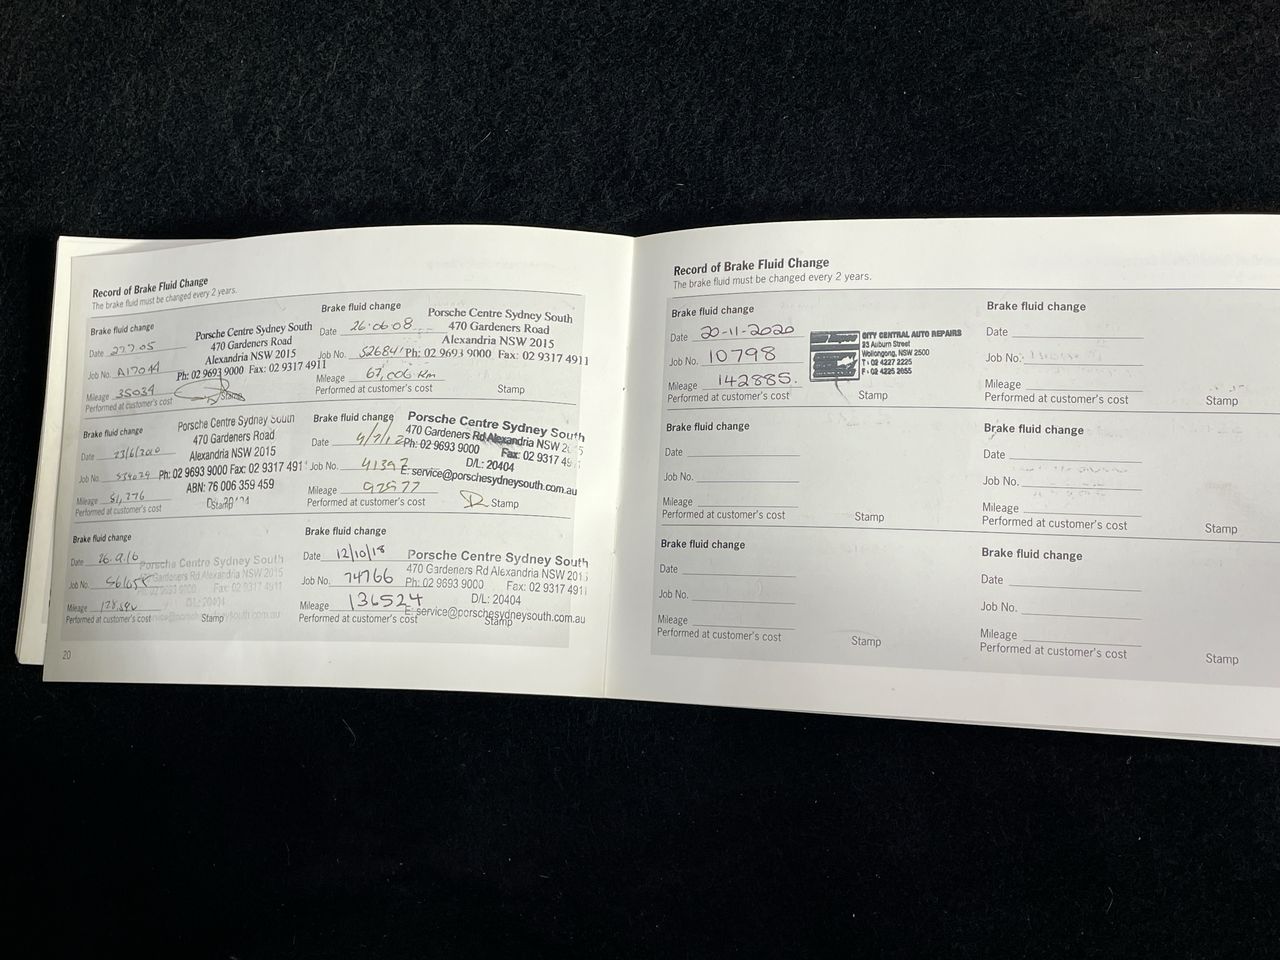 Record of Brake Fluid Change
The brake fluid must be changed every 2 years.
Brake fluid change
Date 27.7.05
Job No. A17044
Mileage 35034
Performed at customer's cost
Stamp
Porsche Centre Sydney South
470 Gardeners Road
Alexandria NSW 2015
Ph: 02 9693 9000 Fax: 02 9317 4911
Brake fluid change
Date 26.06.08
Job No. 52684
Mileage 67,006 km
Performed at customer's cost
Stamp
Porsche Centre Sydney South
470 Gardeners Road
Alexandria NSW 2015
Ph: 02 9693 9000 Fax: 02 9317 4911
Brake fluid change
Date 23/6/2010
Job No.
Mileage 81,276
Performed at customer's cost
Stamp
Porsche Centre Sydney South
470 Gardeners Road
Alexandria NSW 2015
Ph: 02 9693 9000 Fax: 02 9317 491
ABN: 76 006 359 459
Brake fluid change
Date 4/7/12
Job No. 41397
Mileage 92577
Performed at customer's cost
Stamp
Porsche Centre Sydney South
470 Gardeners Rd Alexandria NSW
Ph: 02 9693 9000 Fax: 02 9317 49
D/L: 20404
E: service@porschesydneysouth.com.au
Brake fluid change
Date 26.9.16
Job No.
Mileage
Performed at customer's cost
Stamp
Porsche Centre Sydney South
Gardeners Rd Alexandria NSW 2015
02 9693 9000 Fax: 02 9317 4911
D/L: 20404
Brake fluid change
Date 12/10/18
Job No. 74766
Mileage 136524
Performed at customer's cost
Stamp
Porsche Centre Sydney South
470 Gardeners Rd Alexandria NSW 201
Ph: 02 9693 9000 Fax: 02 9317 4911
D/L: 20404
E: service@porschesydneysouth.com.au
20
Record of Brake Fluid Change
The brake fluid must be changed every 2 years.
Brake fluid change
Date 20-11-2020
Job No. 10798
Mileage 142885.
Performed at customer's cost
Stamp
CITY CENTRAL AUTO REPAIRS
Auburn Street
Wollongong, NSW 2500
T: 02 4227 2225
F: 02 4226 2055
Brake fluid change
Date
Job No.
Mileage
Performed at customer's cost
Stamp
Brake fluid change
Date
Job No.
Mileage
Performed at customer's cost
Stamp
Brake fluid change
Date
Job No.
Mileage
Performed at customer's cost
Stamp
Brake fluid change
Date
Job No.
Mileage
Performed at customer's cost
Stamp
Brake fluid change
Date
Job No.
Mileage
Performed at customer's cost
Stamp